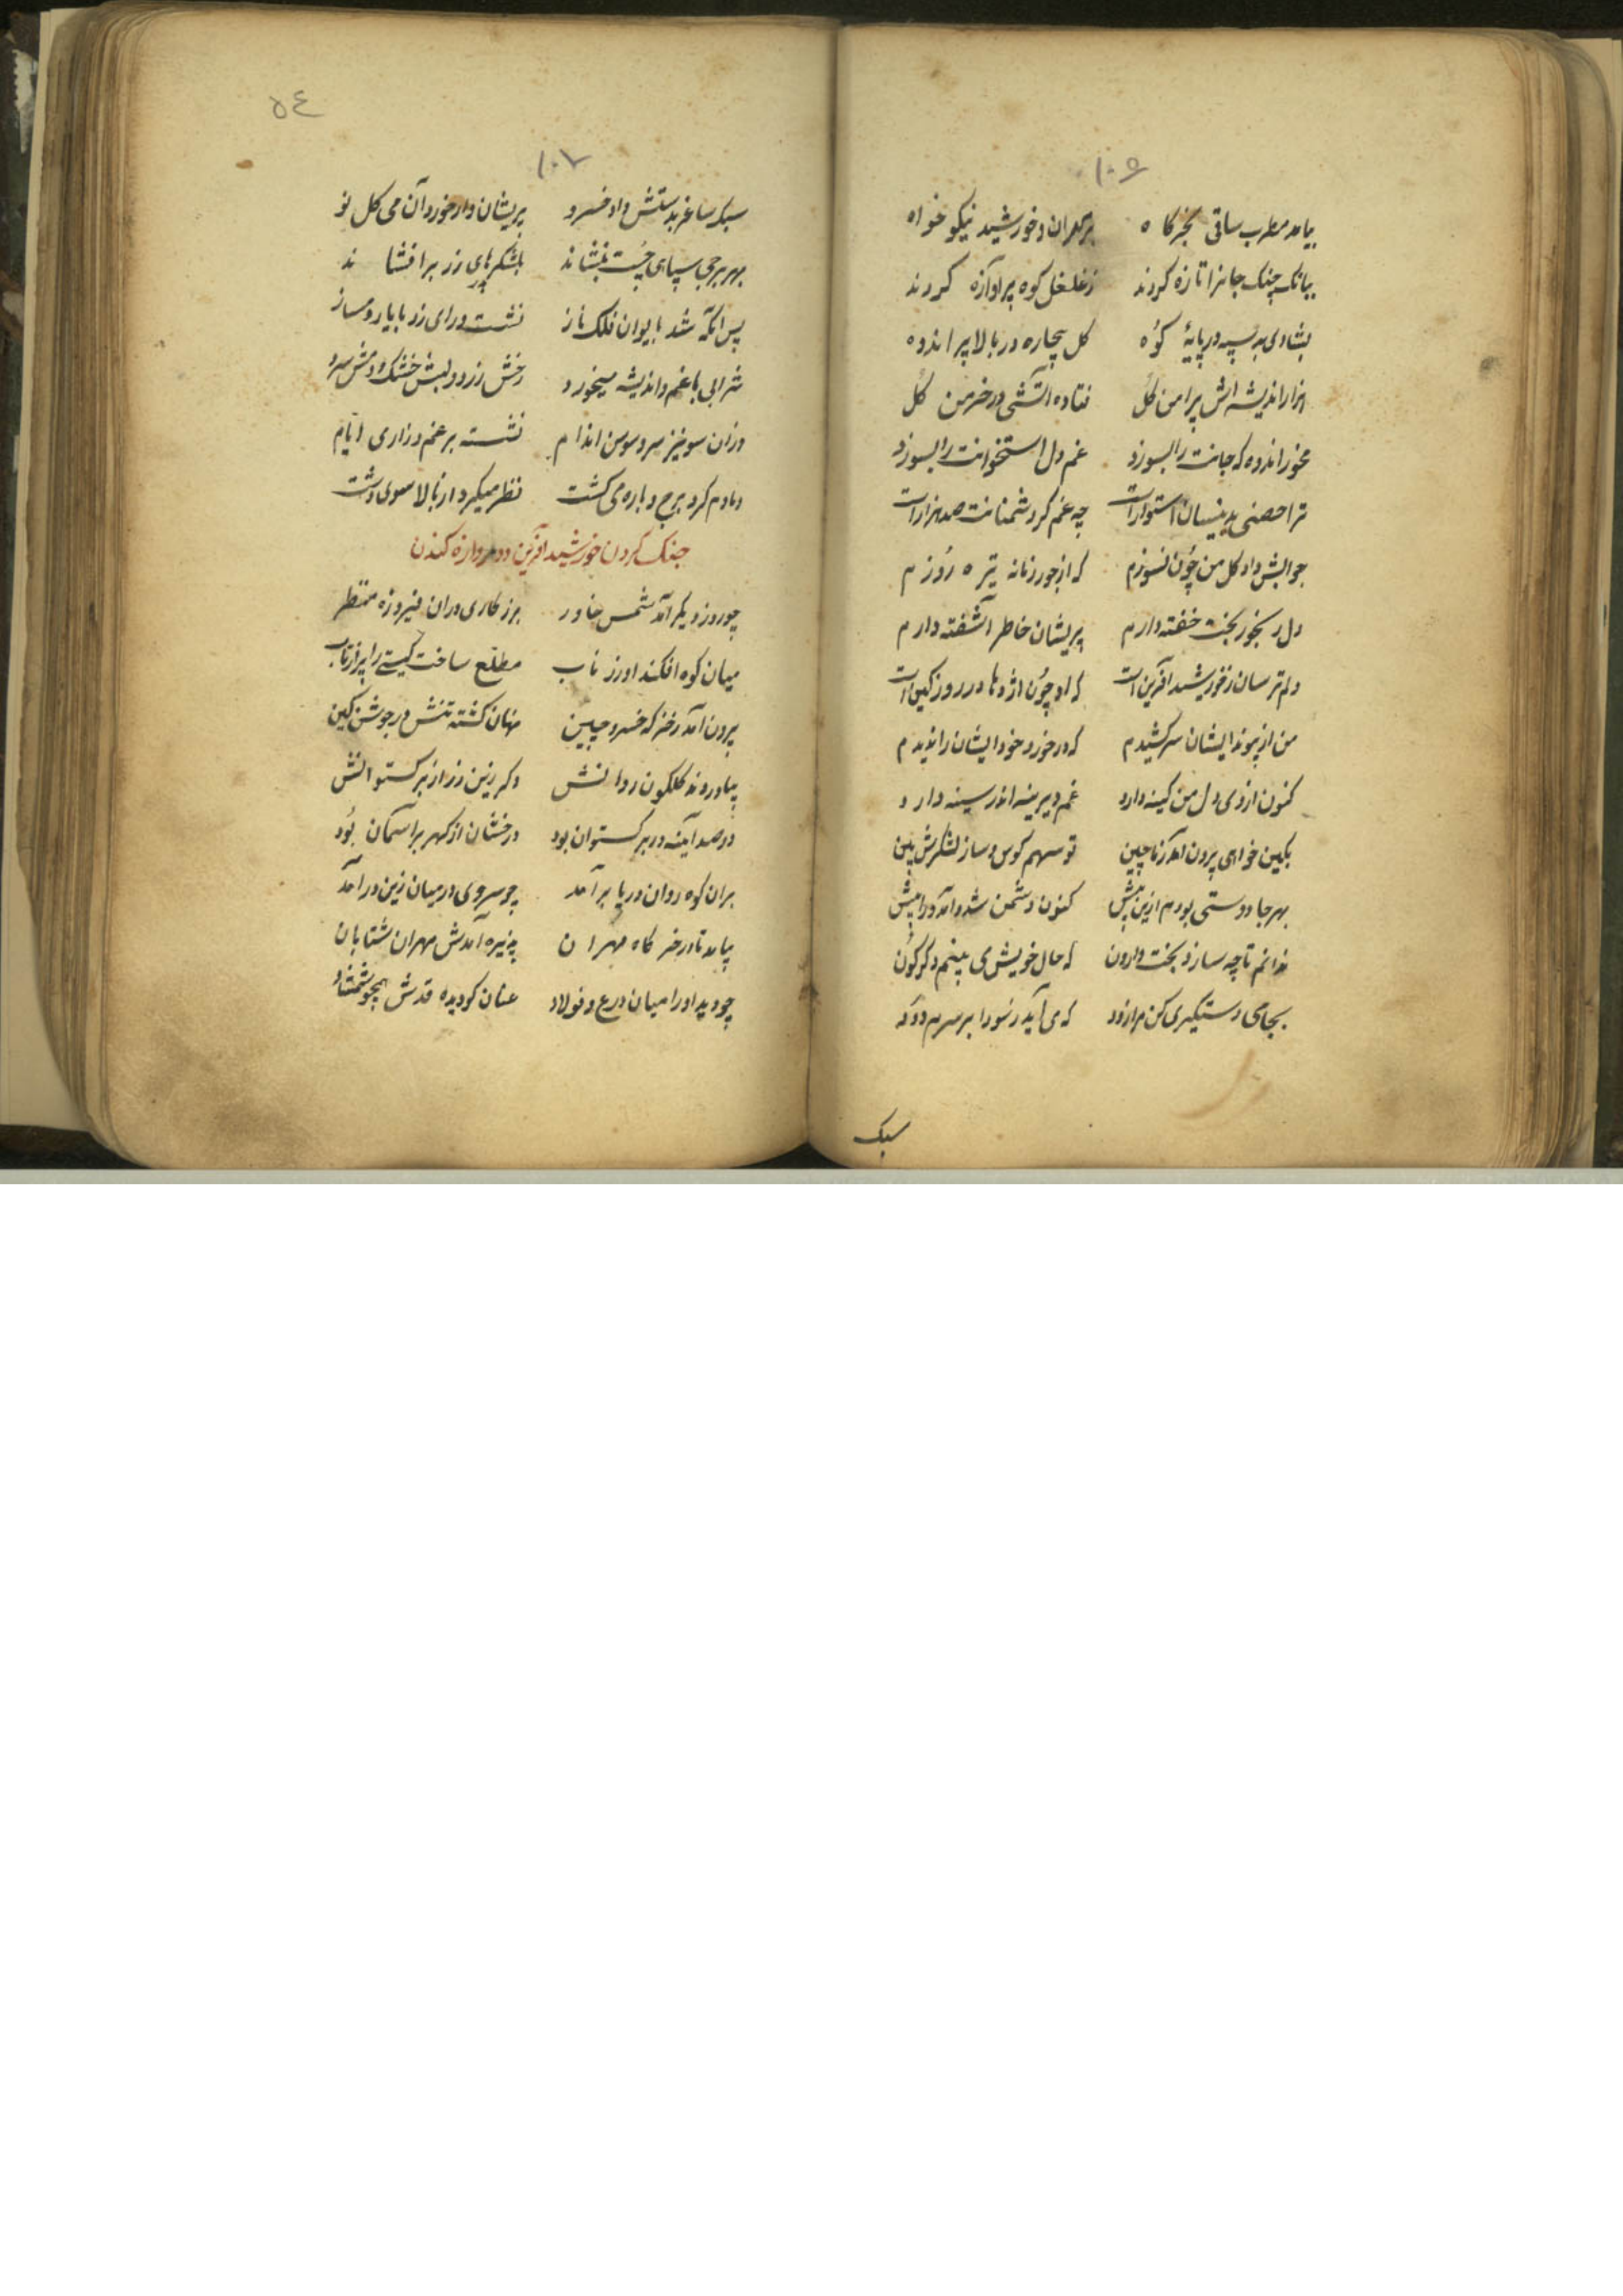 ۱۰۶
بیامد مطرب ساقی بخرگاه بر مهران و خورشید نیکو خواه
ببانک چنک جانرا تازه کردند ز غلغل کوه پر آوازه کردند
بشادی سپه در پایهٔ کوه کل بیچاره در بالا پر اندوه
هزار اندیشه اش پیرامن کل فتاده آتشی در خرمن کل
مخور اندوه که جانت را بسوزد غم دل استخوانت را بسوزد
ترا حصنی بدینسان استوارست چه غم کر دشمنانت صد هزارست
جوابش داد کل من چون نسوزم که از جور زمانه تیره روزم
دل رنجور بخت خفته دارم پریشان خاطر آشفته دارم
دلم ترسان ز خورشید آفرین است که او چون اژدها در روز کین است
من از پیوند ایشان سر کشیدم که در خورد خود ایشان را ندیدم
کنون از وی دل من کینه دارد غم دیرینه اندر سینه دارد
بکین خواهی برون آمد ز ماچین تو سهم کوس و ساز لشکرش بین
بهر جا دوستی بودم ازین پیش کنون دشمن شد و آمد ورا پیش
ندانم تا چه سازد بخت وارون که حال خویش می بینم دکرکون
بجامی دستکیری کن مرا زود که می آید ز سودا بر سرم دود
سبک
٥٤
۱۰۷
سبک ساغر بدستش داد خسرو پریشان وار خورد آن می کل نو
بهر برجی سپاهی چست بنشاند بلشکرهای زر بر افشاند
پس آنکه شد بایوان فلک ناز نشست ورای زد با یار دمساز
شرابی با غم و اندیشه میخورد رخش زرد و لبش خشک و دمش سرد
وزان سو نیز سرو سوسن اندام نشسته بر غم و زاری ایام
دمادم کرد برج و باره می کشت نظر میکرد از بالا سوی دشت
جنک کردن خورشید آفرین و دروازه کندن
چو روز دیکر آمد شمس خاور بزرکاری دران فیروزه منظر
میان کوه افکند او زر ناب مطلع ساخت کیتی را پر از تاب
برون آمد ز خرکه خسرو چین نهان کشته تنش در جوشن کین
بیاوردند کلکون روانش دکر زین زر از برکستوانش
دو صد آینه در برکستوان بود درخشان از کهر بر آسمان بود
بران کوه روان دریا بر آمد چو سروی در میان زین در آمد
بیامد تا در خرکاه مهران پذیره آمدش مهران شتابان
چو دید او را میان درع و فولاد عنان کو دیده قدش همچو شمشاد